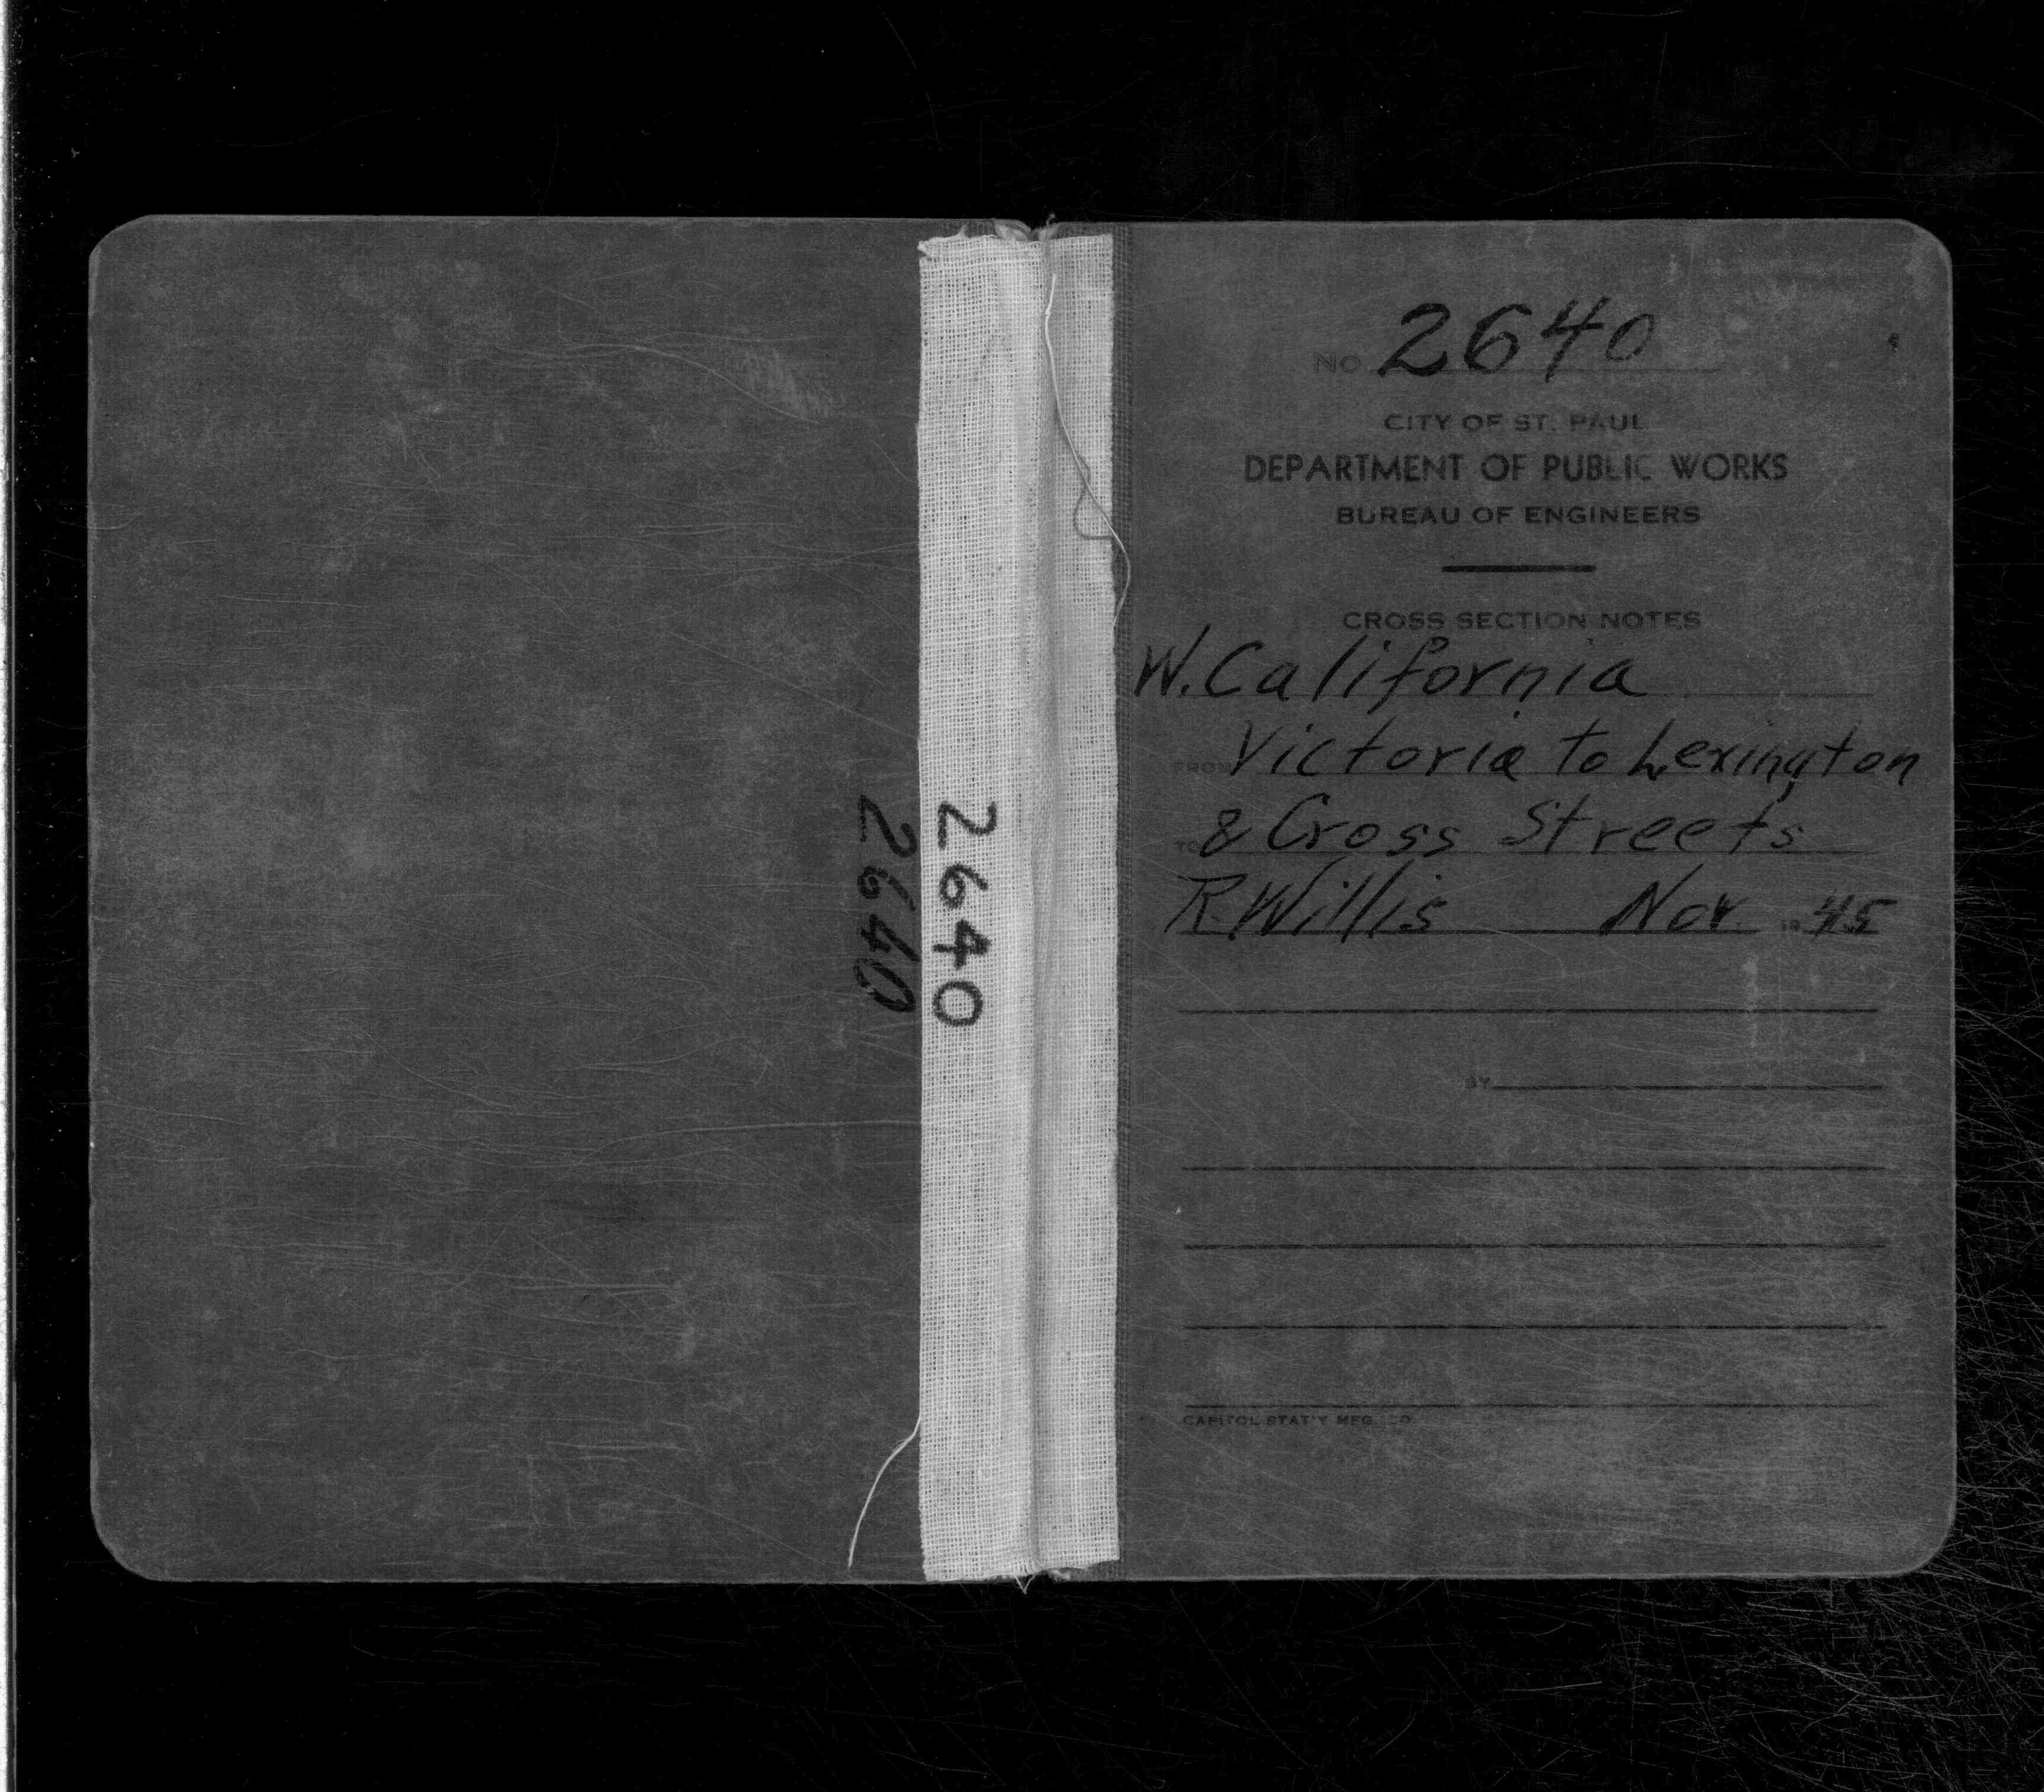 2640
2640
No 2640
CITY OF ST. PAUL
DEPARTMENT OF PUBLIC WORKS
BUREAU OF ENGINEERS
CROSS SECTION NOTES
W. California
FROM Victoria to Lexington
TO & Cross Streets
R. Willis Nov. 19 45
BY
CAPITOL STAT'Y MFG. CO.